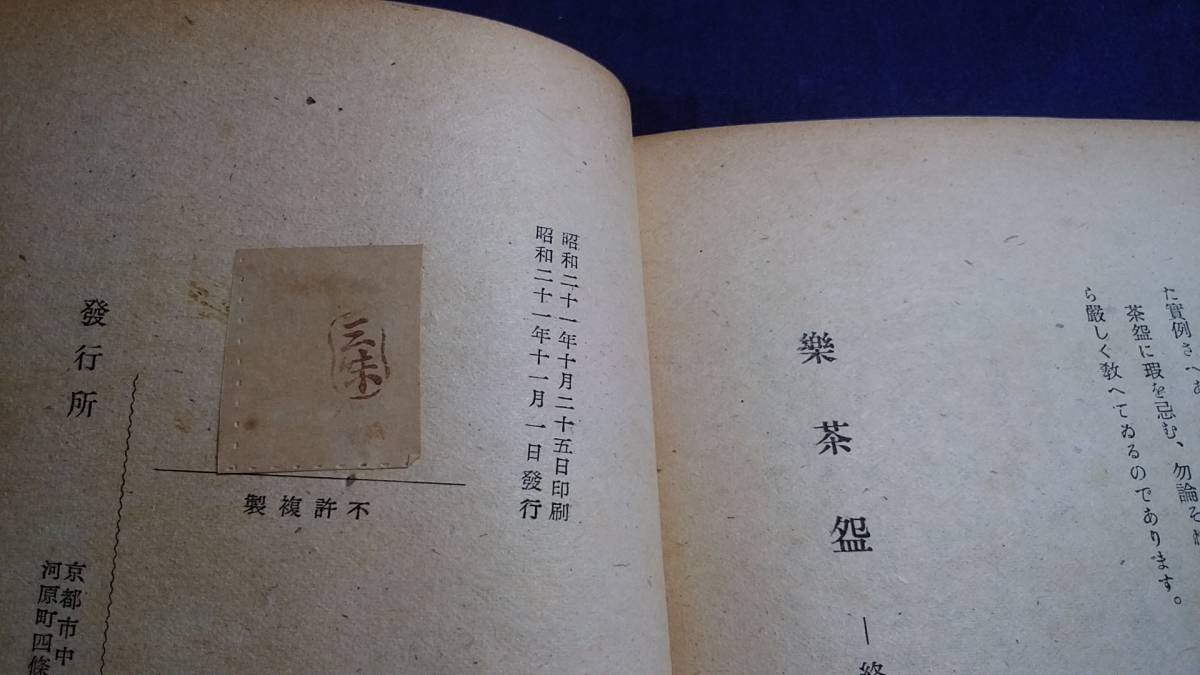 た實例さへあ
茶盌に瑕を忌む、勿論その
ら嚴しく敎へてゐるのであります。
樂茶盌
―終
昭和二十一年十月二十五日印刷
昭和二十一年十一月一日發行
不許複製
發行所
京都市中
河原町四條